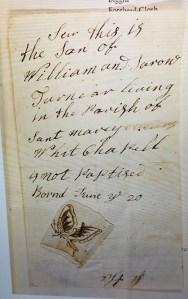 Forehead Cloth
Sur this is
the San of
William and Saron
Turnear living
in the Parish of
Sant marey
Whit Chapell
& not Baptised
Bornd June ye 20